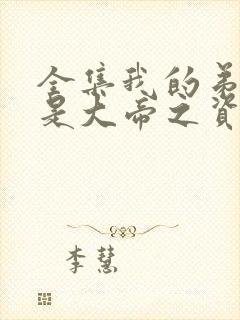 全集我的弟
是大帝之资
李慧